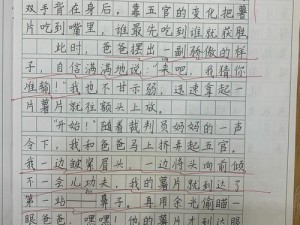 双手背在身后，靠五官的变化把薯
片吃到嘴里，谁最先吃到谁就获胜
此时，爸爸摆出一副骄傲的样
子，自信满满地说："来吧，我猜你
准输！"我也不甘示弱，迅速拿起一
片薯片就往额头上放。
"开始！"随着裁判员妈妈的一声
令下，我和爸爸马上拼弄起五官。
我一边皱紧眉头，一边将头向前倾
不一会儿功夫，我的薯片就到达了
第一站——鼻子。再用余光偷瞄一
眼爸爸，嘿嘿！他的才到达眼